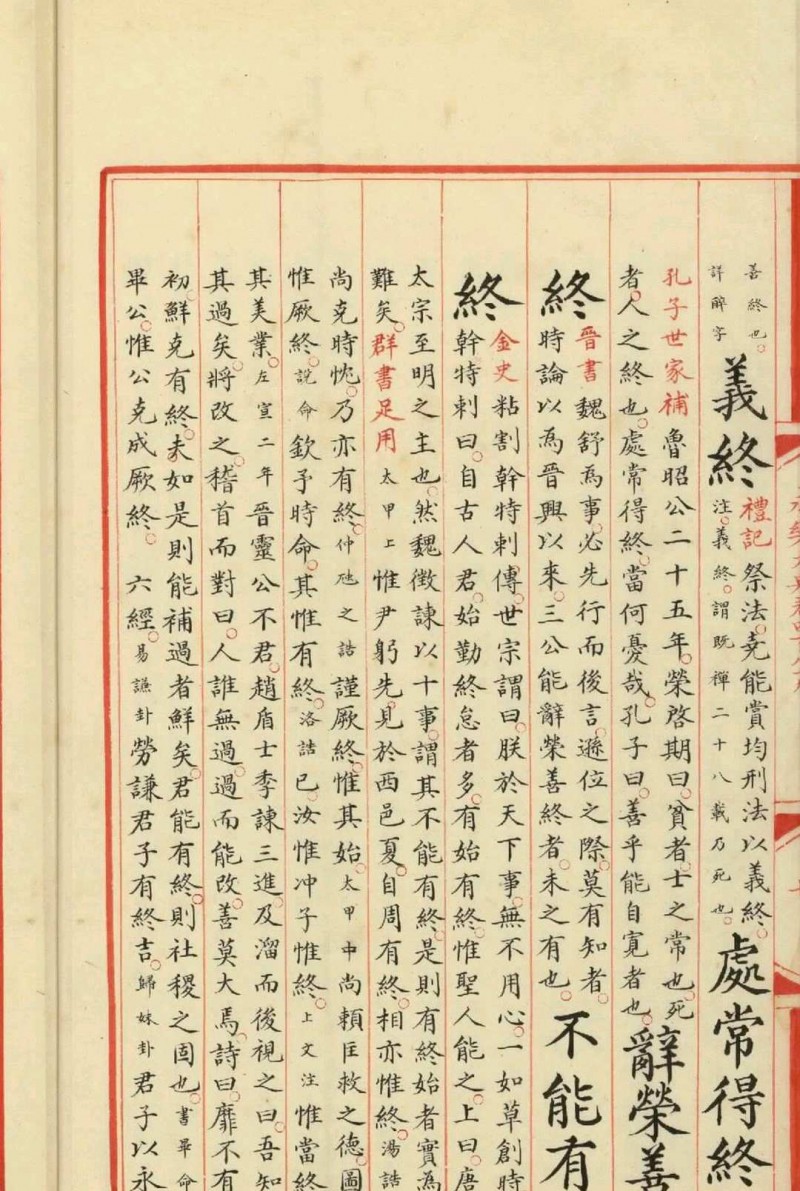 善終也。
詳解字
義終
禮記祭法。堯能賞均刑法以義終。
注。義終。謂既禪二十八載乃死也。
處常得終
孔子世家補魯昭公二十五年。榮啓期曰。貧者。士之常也。死
者。人之終也。處常得終。當何憂哉。孔子曰。善乎能自寬者也。
辭榮善
終
晉書魏舒為事。必先行而後言。遜位之際。莫有知者。
時論以為晉興以來。三公能辭榮善終者。未之有也。
不能有
終
金史粘割幹特剌。傳。世宗謂曰。朕於天下事。無不用心。一如草創時
幹特剌曰。自古人君。始勤終怠者多。有始有終。惟聖人能之。上曰。唐
太宗至明之主也。然魏徵諫以十事。謂其不能有終。是則有終始者實為
難矣。群書足用太甲上惟尹躬先。見於西邑夏。自周有終。相亦惟終。湯誥
尚克時忱。乃亦有終。仲虺之誥謹厥終。惟其始。太甲中尚賴匡救之德。圖
惟厥終。說命欽予時命。其惟有終。洛誥已。汝惟冲子惟終。上文注惟當終
其美業。左宣二年晉靈公不君。趙盾士季諫三進。及溜而後視之曰。吾知
其過矣。將改之。稽首而對曰。人誰無過。過而能改。善莫大焉。詩曰。靡不有
初。鮮克有終。夫如是則能補過者鮮矣。君能有終。則社稷之固也。書畢命
畢公。惟公克成厥終。六經。易謙卦勞謙君子有終吉。歸妹卦君子以永